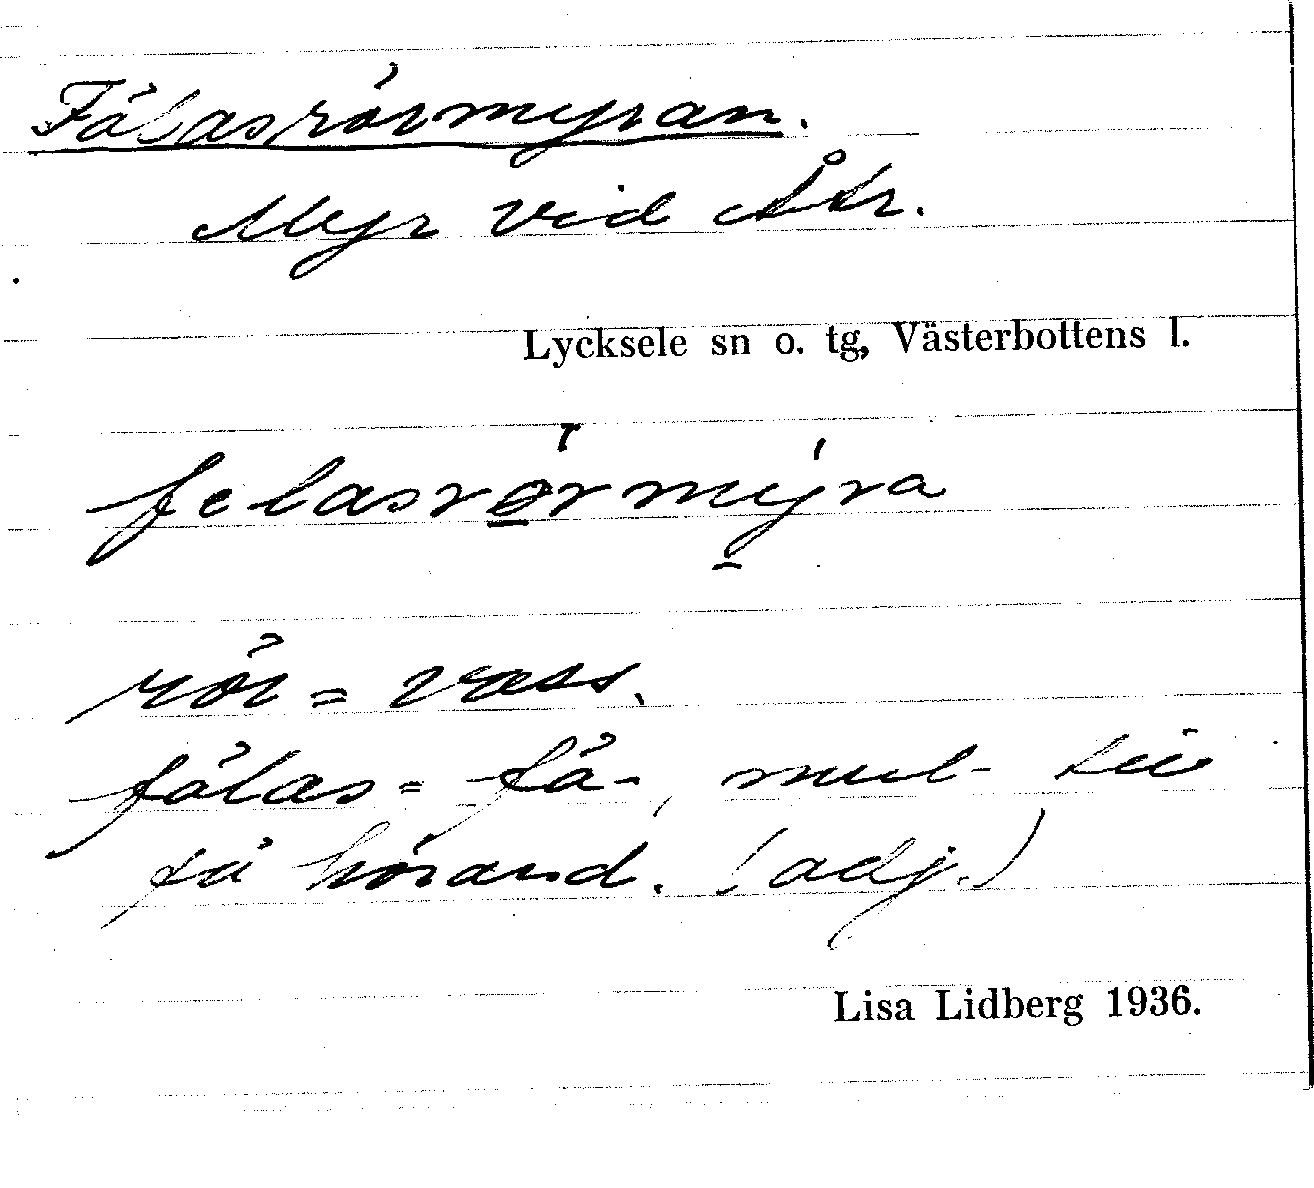 Fälasrörmyran.
Myr vid Åtr.
Lycksele sn o. tg, Västerbottens l.
felasrörmyra
rör = vass.
fälas = fä-, mul- till
fä hörand. (adj.)
Lisa Lidberg 1936.